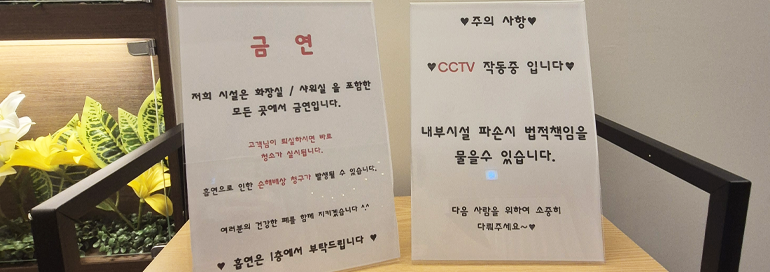 금 연
저희 시설은 화장실 / 샤워실 을 포함한
모든 곳에서 금연입니다.
고객님이 퇴실하시면 바로
청소가 실시됩니다.
흡연으로 인한 손해배상 청구가 발생될 수 있습니다.
여러분의 건강한 폐를 함께 지키겠습니다 ^.^
♥ 흡연은 1층에서 부탁드립니다 ♥
♥주의 사항♥
♥CCTV 작동중 입니다♥
내부시설 파손시 법적책임을
물을수 있습니다.
다음 사람을 위하여 소중히
다뤄주세요~♥